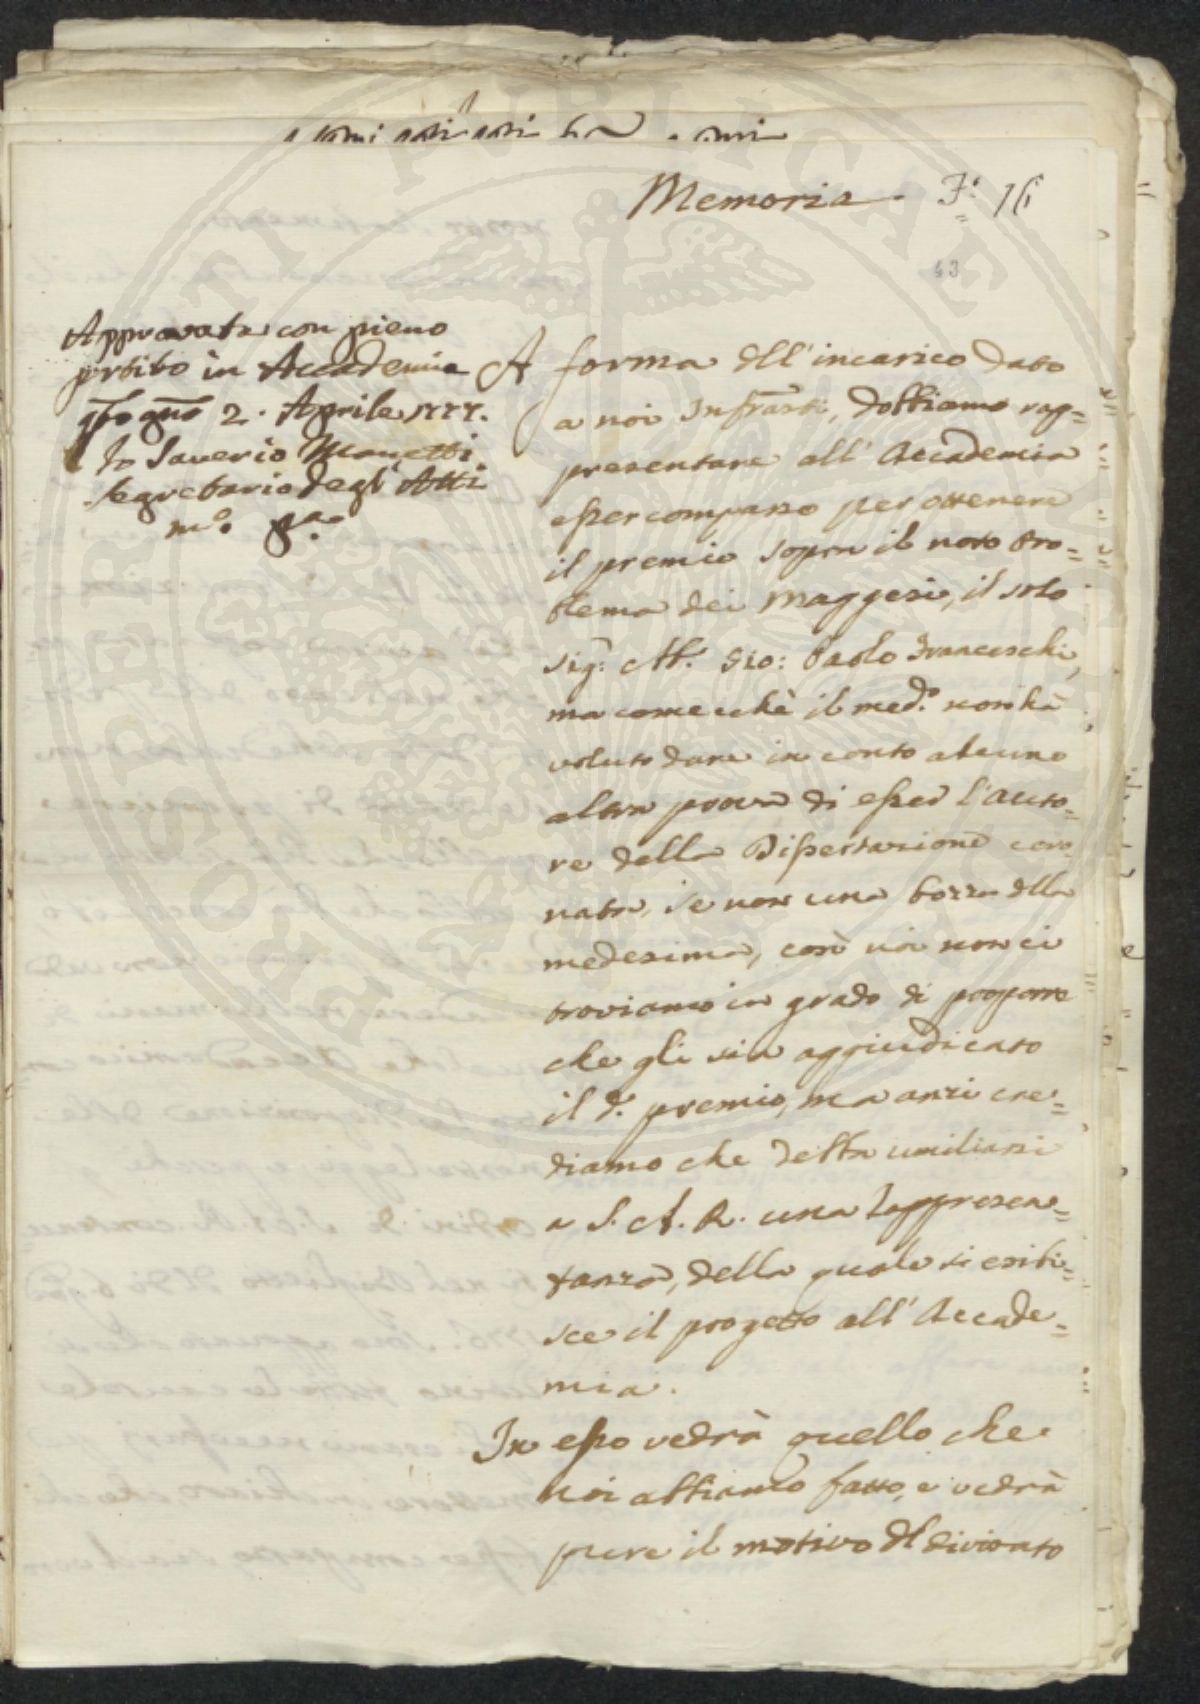 Memoria. F.° 16
43
Approvata con pieno
partito in Accademia
questo giorno 2. Aprile 1777.
Io Saverio Manetti
Segretario degl'Atti
m.° p.a
A forma dell'incarico dato
a noi Infrãtti, dobbiamo rap=
presentare all'Accademia
esser comparso per ottenere
il premio sopra il noto Pro=
blema dei Maggesi, il solo
Sig.: Ab.e Gio: Paolo Franceschi,
ma comecchè il med.° non hà
voluto dare in conto alcuno
altra prova di esser l'Auto=
re della Dissertazione coro=
nata, se non una bozza della
medesima, così noi non ci
troviamo in grado di proporre
che gli sia aggiudicato
il d.° premio, ma anzi cre=
diamo che debba umiliarsi
a S. A. R. una rappresen=
tanza, della quale si esibi=
sce il progetto all'Accade=
mia.
In esso vedrà quello che
noi abbiamo fatto, e vedrà
pure il motivo del divisato
PROSPERITATI PUBLICAE AUGENDAE